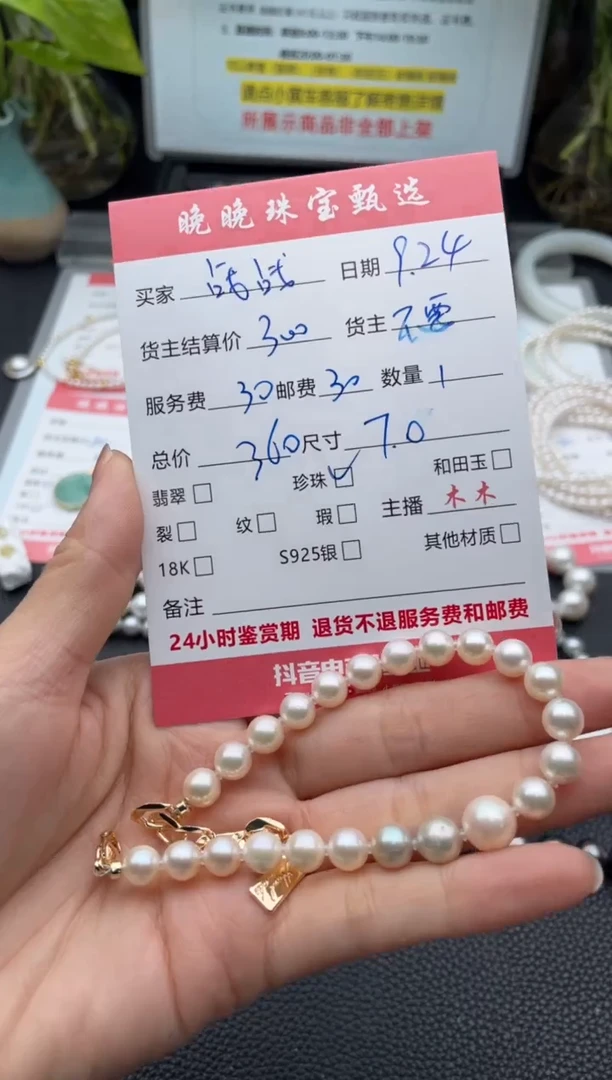 点小黄车客服了解优惠详情
所展示商品非全部上架
晚晚珠宝甄选
买家 日期 9.24
货主结算价 300 货主 不要
服务费 30 邮费 30 数量 1
总价 360 尺寸 7.0
翡翠 珍珠 和田玉
裂 纹 瑕 主播 木木
18K S925银 其他材质
备注
24小时鉴赏期 退货不退服务费和邮费
抖音电